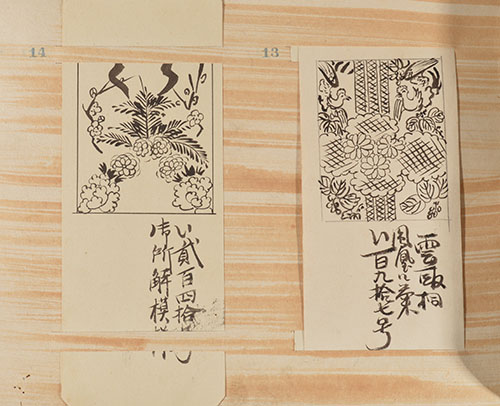 14
い貳百四拾
御所解模
13
雲取
鳳凰ニ菊
い百九拾七号